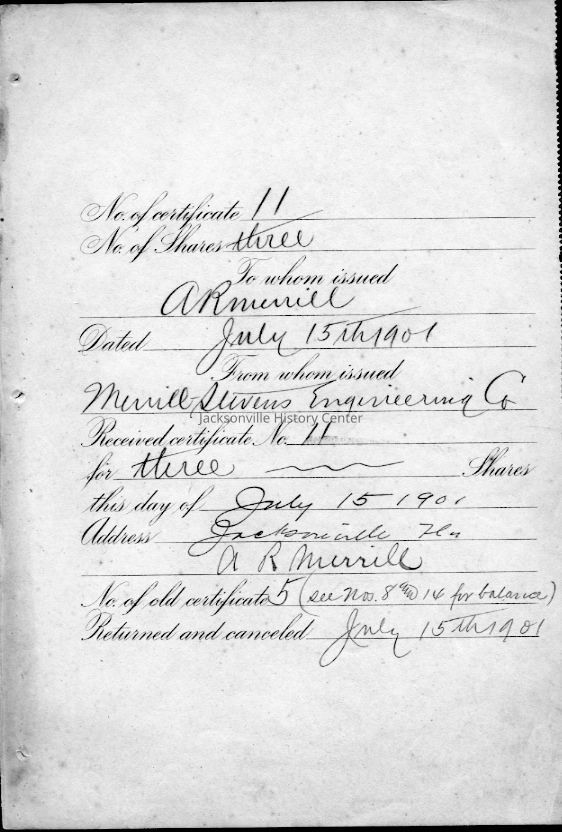 No. of certificate 11
No. of Shares three
To whom issued
A R Merrill
Dated July 15th 1901
From whom issued
Merrill-Stevens Engineering Co
Jacksonville History Center
Received certificate No. 11
for three Shares
this day of July 15 1901
Address Jacksonville Fla
A R Merrill
No. of old certificate 5 (see Nos. 8 and 14 for balance)
Returned and canceled July 15th 1901